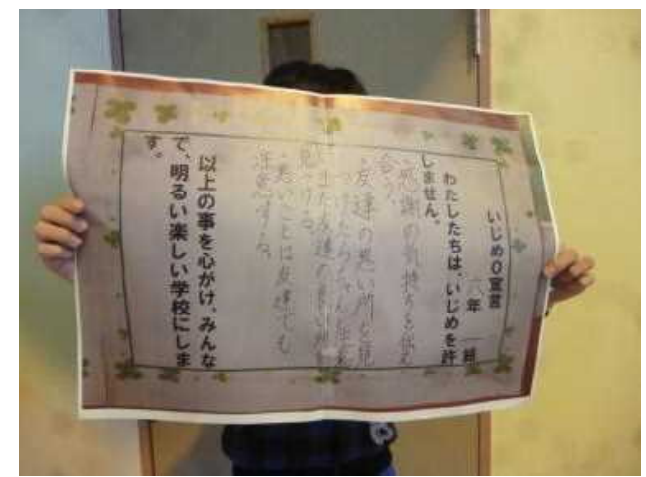 いじめ0宣言
六年 組
わたしたちは、いじめを許
しません。
感謝の気持ちを伝え
合う。
友達の悪い所を見
つけたらちゃん
また友達の良い所
見つける。
悪いことは友達でも
注意する。
以上の事を心がけ、みんな
で、明るい楽しい学校にしま
す。